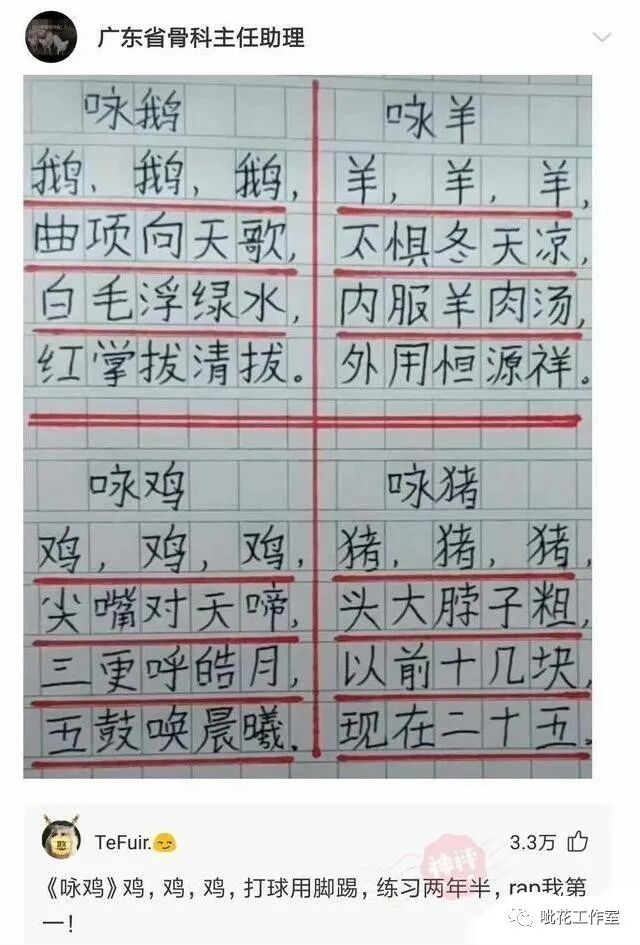 广东省骨科主任助理
咏鹅
鹅，鹅，鹅，
曲项向天歌，
白毛浮绿水，
红掌拔清拔。
咏羊
羊，羊，羊，
不惧冬天凉，
内服羊肉汤，
外用恒源祥。
咏鸡
鸡，鸡，鸡，
尖嘴对天啼，
三更呼皓月，
五鼓唤晨曦.
咏猪
猪，猪，猪，
头大脖子粗，
以前十几块，
现在二十五.
TeFuir.😏
3.3万
神评
《咏鸡》鸡，鸡，鸡，打球用脚踢，练习两年半，rap我第
一！
呲花工作室